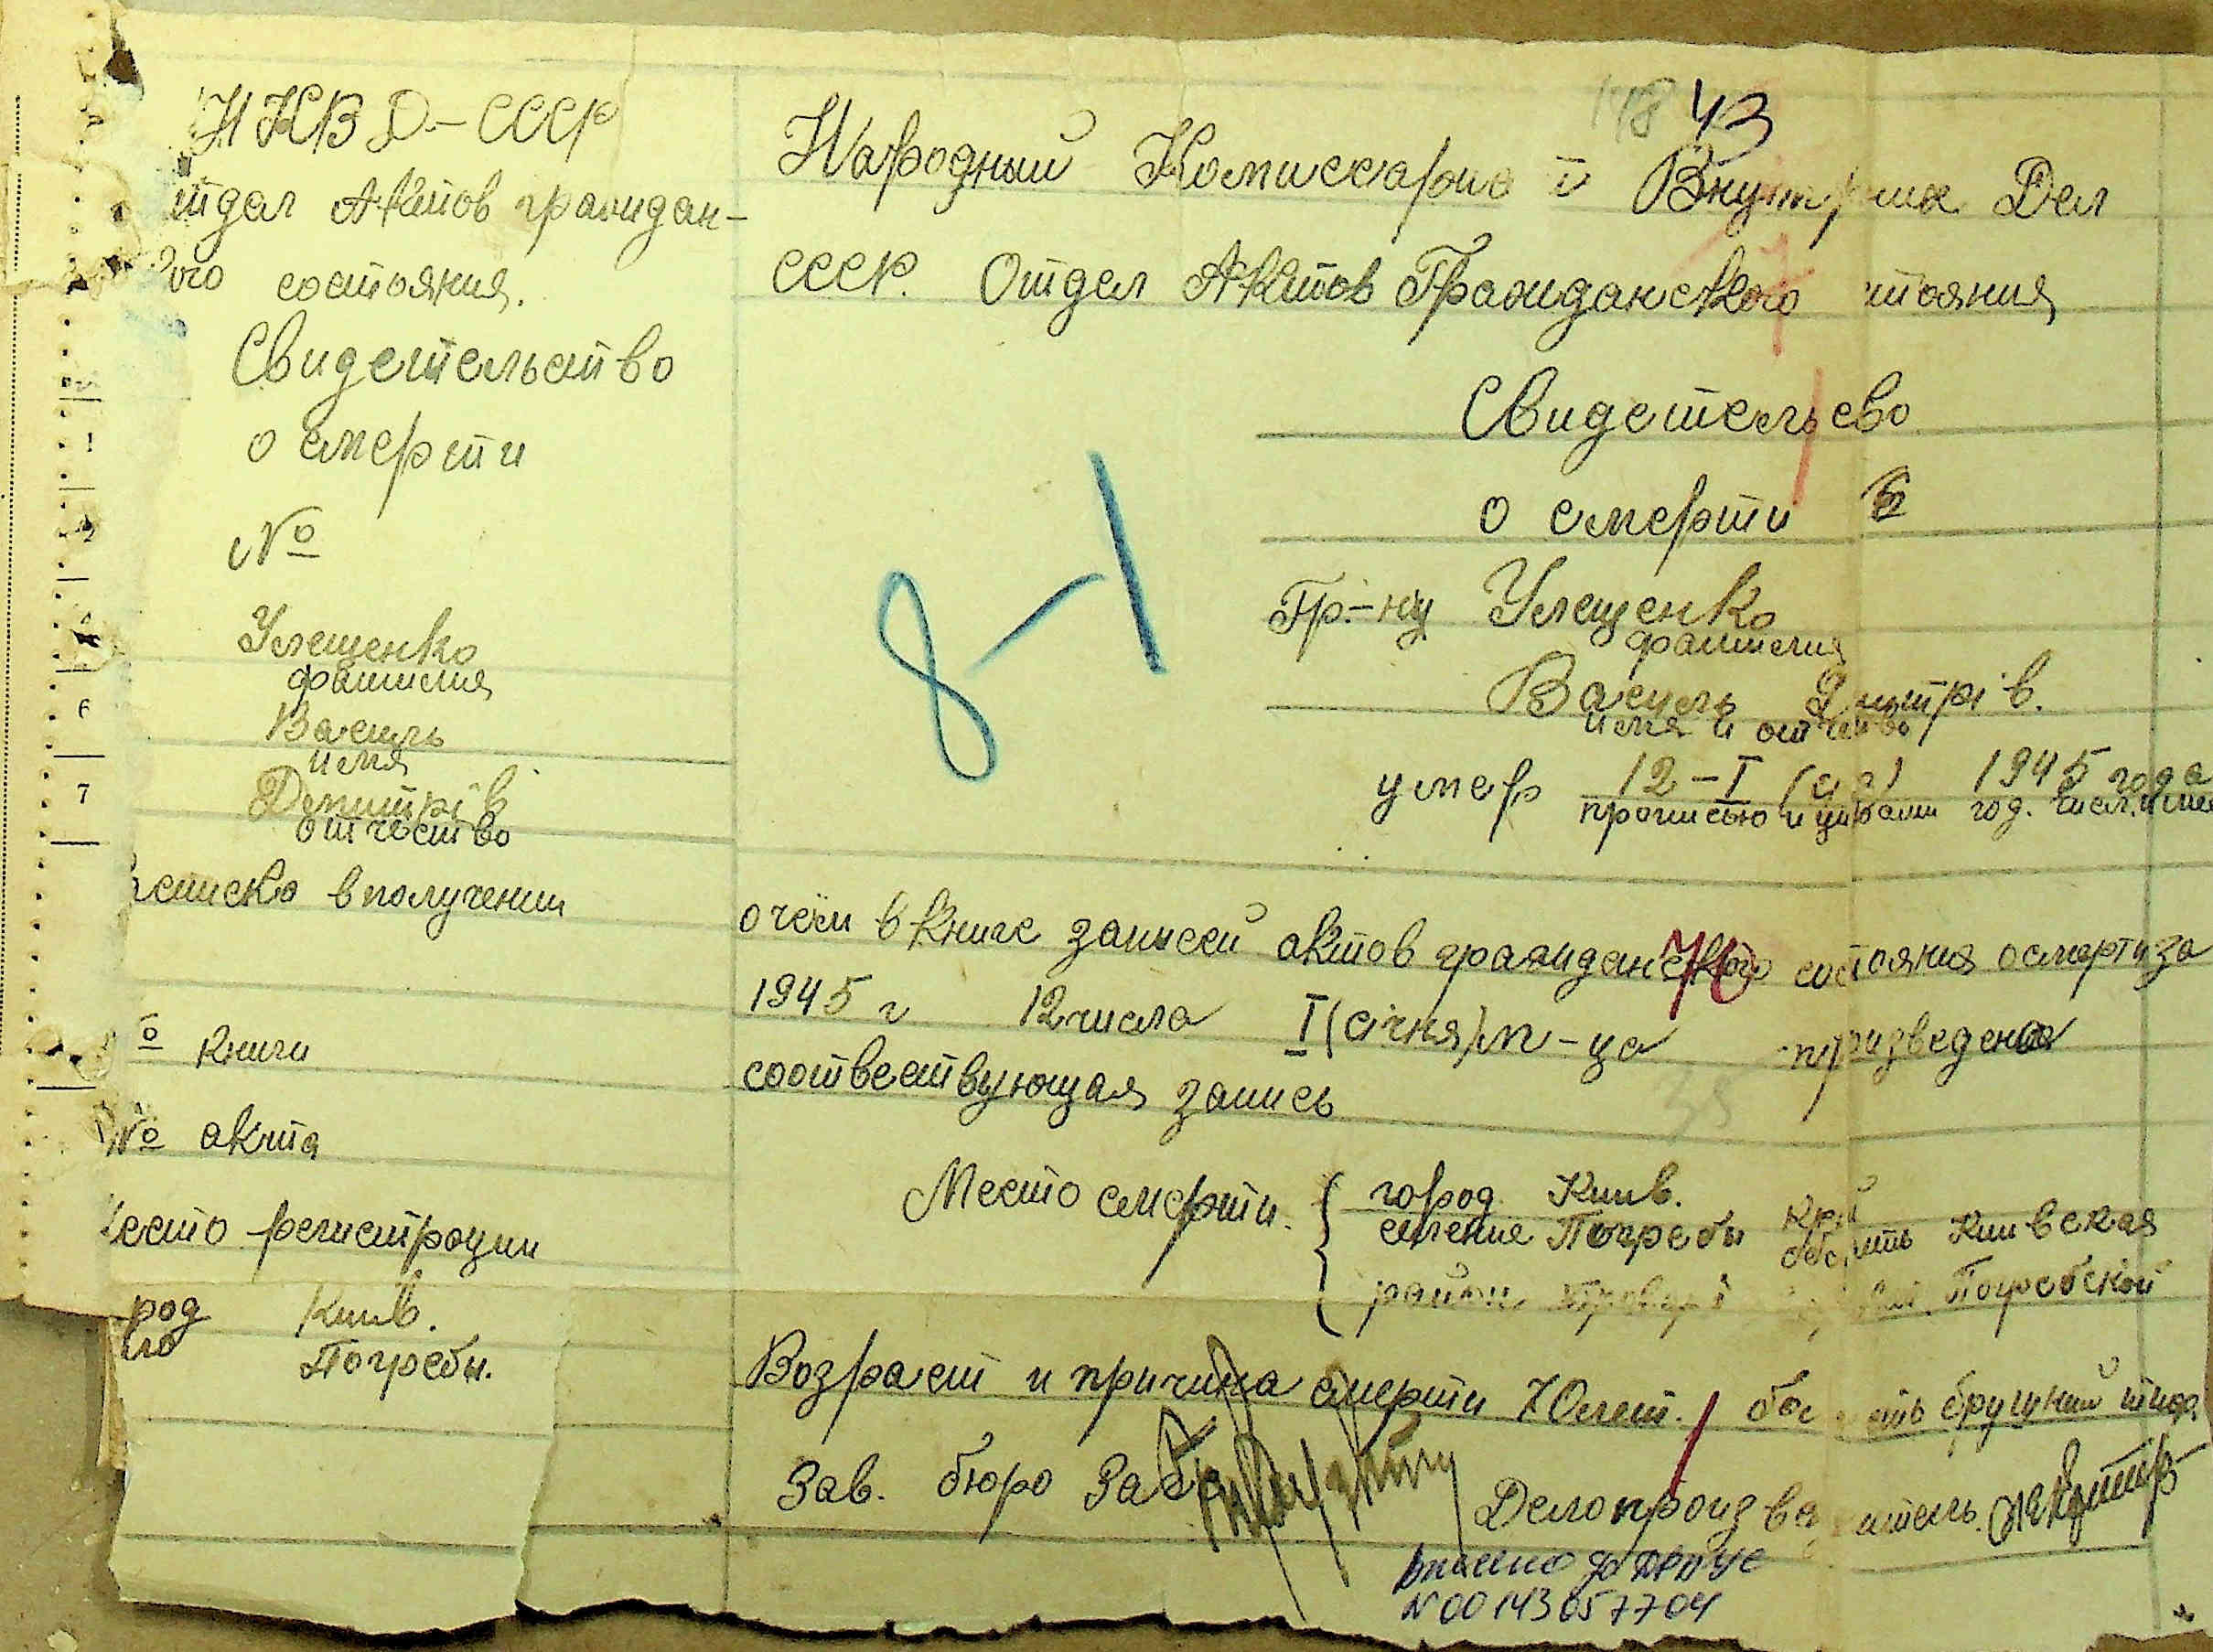 НКВД-СССР
тдел Актов граждан-
ого состояния.
Свидетельство
о смерти
№
Улещенко
фамилия
Василь
имя
Дмитрів
отчество
списка в получении
о книги
№ акта
есто регистрации
род Киів.
Погребы.
1
2
6
7
148 43
Народный Комиссариат Внутрених Дел
СССР. Отдел Актов Гражданского стояния
Свидетельсво
о смерти
Гр.-ну Улещенко
фамилия
Василь Дмитрів.
имя и отчество
умер 12-I (січ) 1945 года
прописью и цифрами год. числ. и мес
8-1
о чём в книге записей актов гражданского состояния о смерти за
76
1945 г 12 числа I (січня) м-ца призведена
соотвествующая запись
35
Место смерти. город Киів. край
селение Погребы область Киивская
район Бровары Погребской
Возраст и причина смерти 70 лет. болесть брушний тиф
Зав. бюро Загс
Делопроизводитель.
внесено до ДРАЦС
N 00143057704